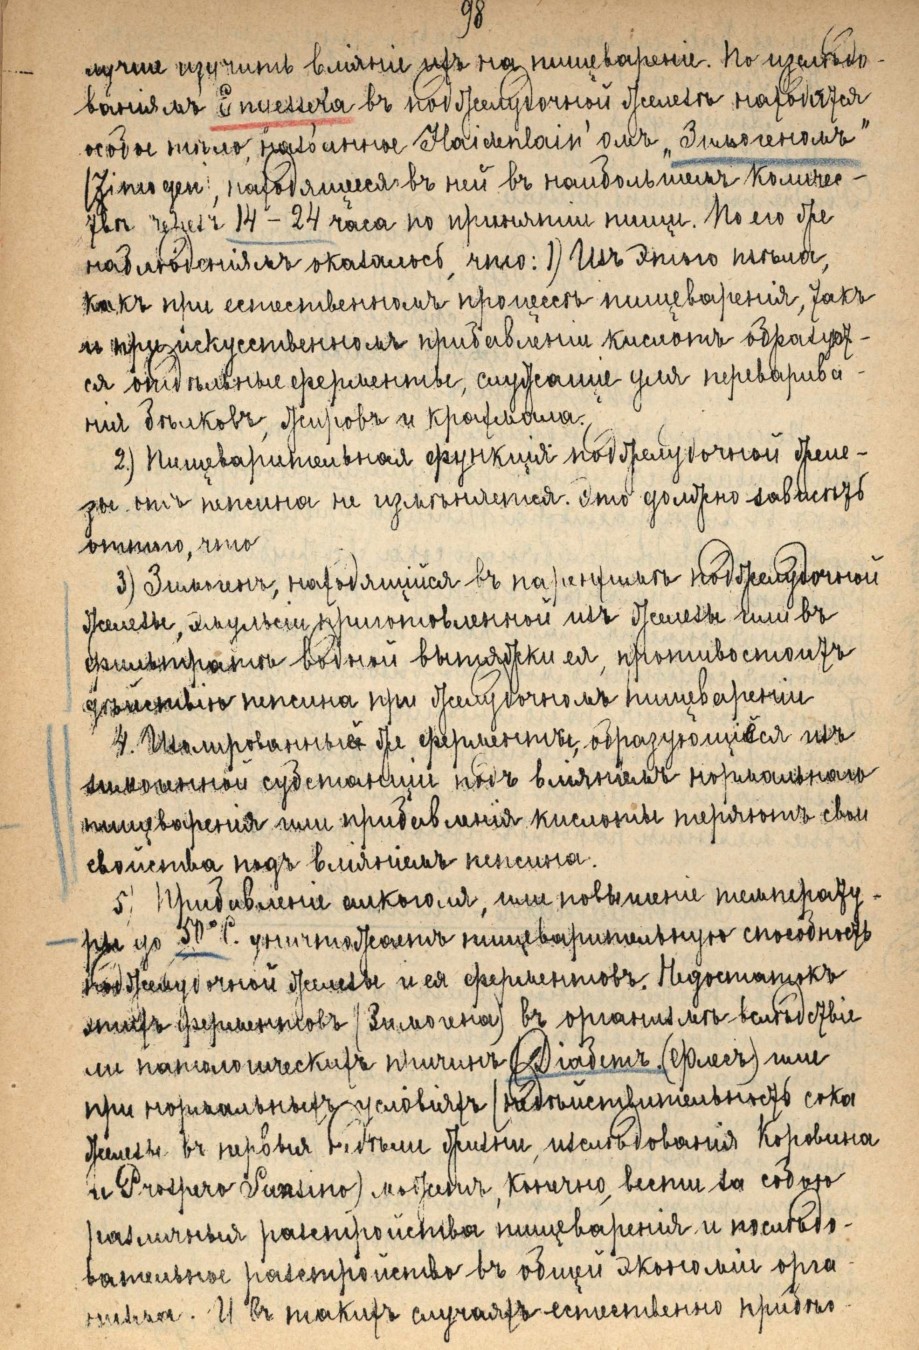 98
лучше изучить вліяніе ихъ на пищевареніе. По изслѣдо-
ваніямъ Engesser'a въ поджелудочной железѣ находятся
особое тѣло, названное Haidenhain'омъ „Зимогеномъ"
(Zimogen), находящееся въ ней въ наибольшемъ количес-
твѣ черезъ 14 – 24 часа по принятіи пищи. По его же
наблюденіямъ оказалось, что: 1) Изъ этого тѣла,
какъ при естественномъ процессѣ пищеваренія, такъ
и при искусственномъ прибавленіи кислотъ образует-
ся отдѣльные ферменты, служащіе для перевари-
нія бѣлковъ, жировъ и крахмала.
2) Пищеварительная функція поджелудочной желе-
зы отъ пепсина не измѣняется. Это должно зависѣть
оттого, что
3) Зимогенъ, находящійся въ паренхимѣ поджелудочной
железы, эмульсіи, приготовленной изъ железы или въ
фильтратѣ водной вытяжки ея, противостоитъ
дѣйствію пепсина при желудочномъ пищевареніи
4. Изолированные же ферменты, образующіеся изъ
зимогенной субстанціи подъ вліяніемъ нормальнаго
пищеваренія или прибавленія кислоты теряютъ свои
свойства подъ вліяніемъ пепсина.
5) Прибавленіе алкоголя, или повышеніе температу-
ры до 50° C. уничтожаетъ пищеварительную способность
поджелудочной железы и ея ферментовъ. Недостатокъ
этихъ ферментовъ (Зимогена) въ организмѣ вслѣдствіе
ли патологическихъ причинъ (Діабетъ (Флесъ) или
при нормальныхъ условіяхъ (недѣйствительность сока
железы въ первыя недѣли жизни, изслѣдованія Коровина
и Prospero Sonsino) можетъ, конечно, вести за собою
различныя разстройства пищеваренія и послѣдо-
вательное разстройство въ общей экономіи орга-
низма. И въ такихъ случаяхъ естественно прибѣ-